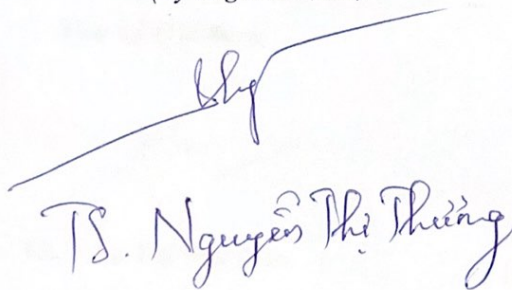 TS. Nguyễn Thị Thường